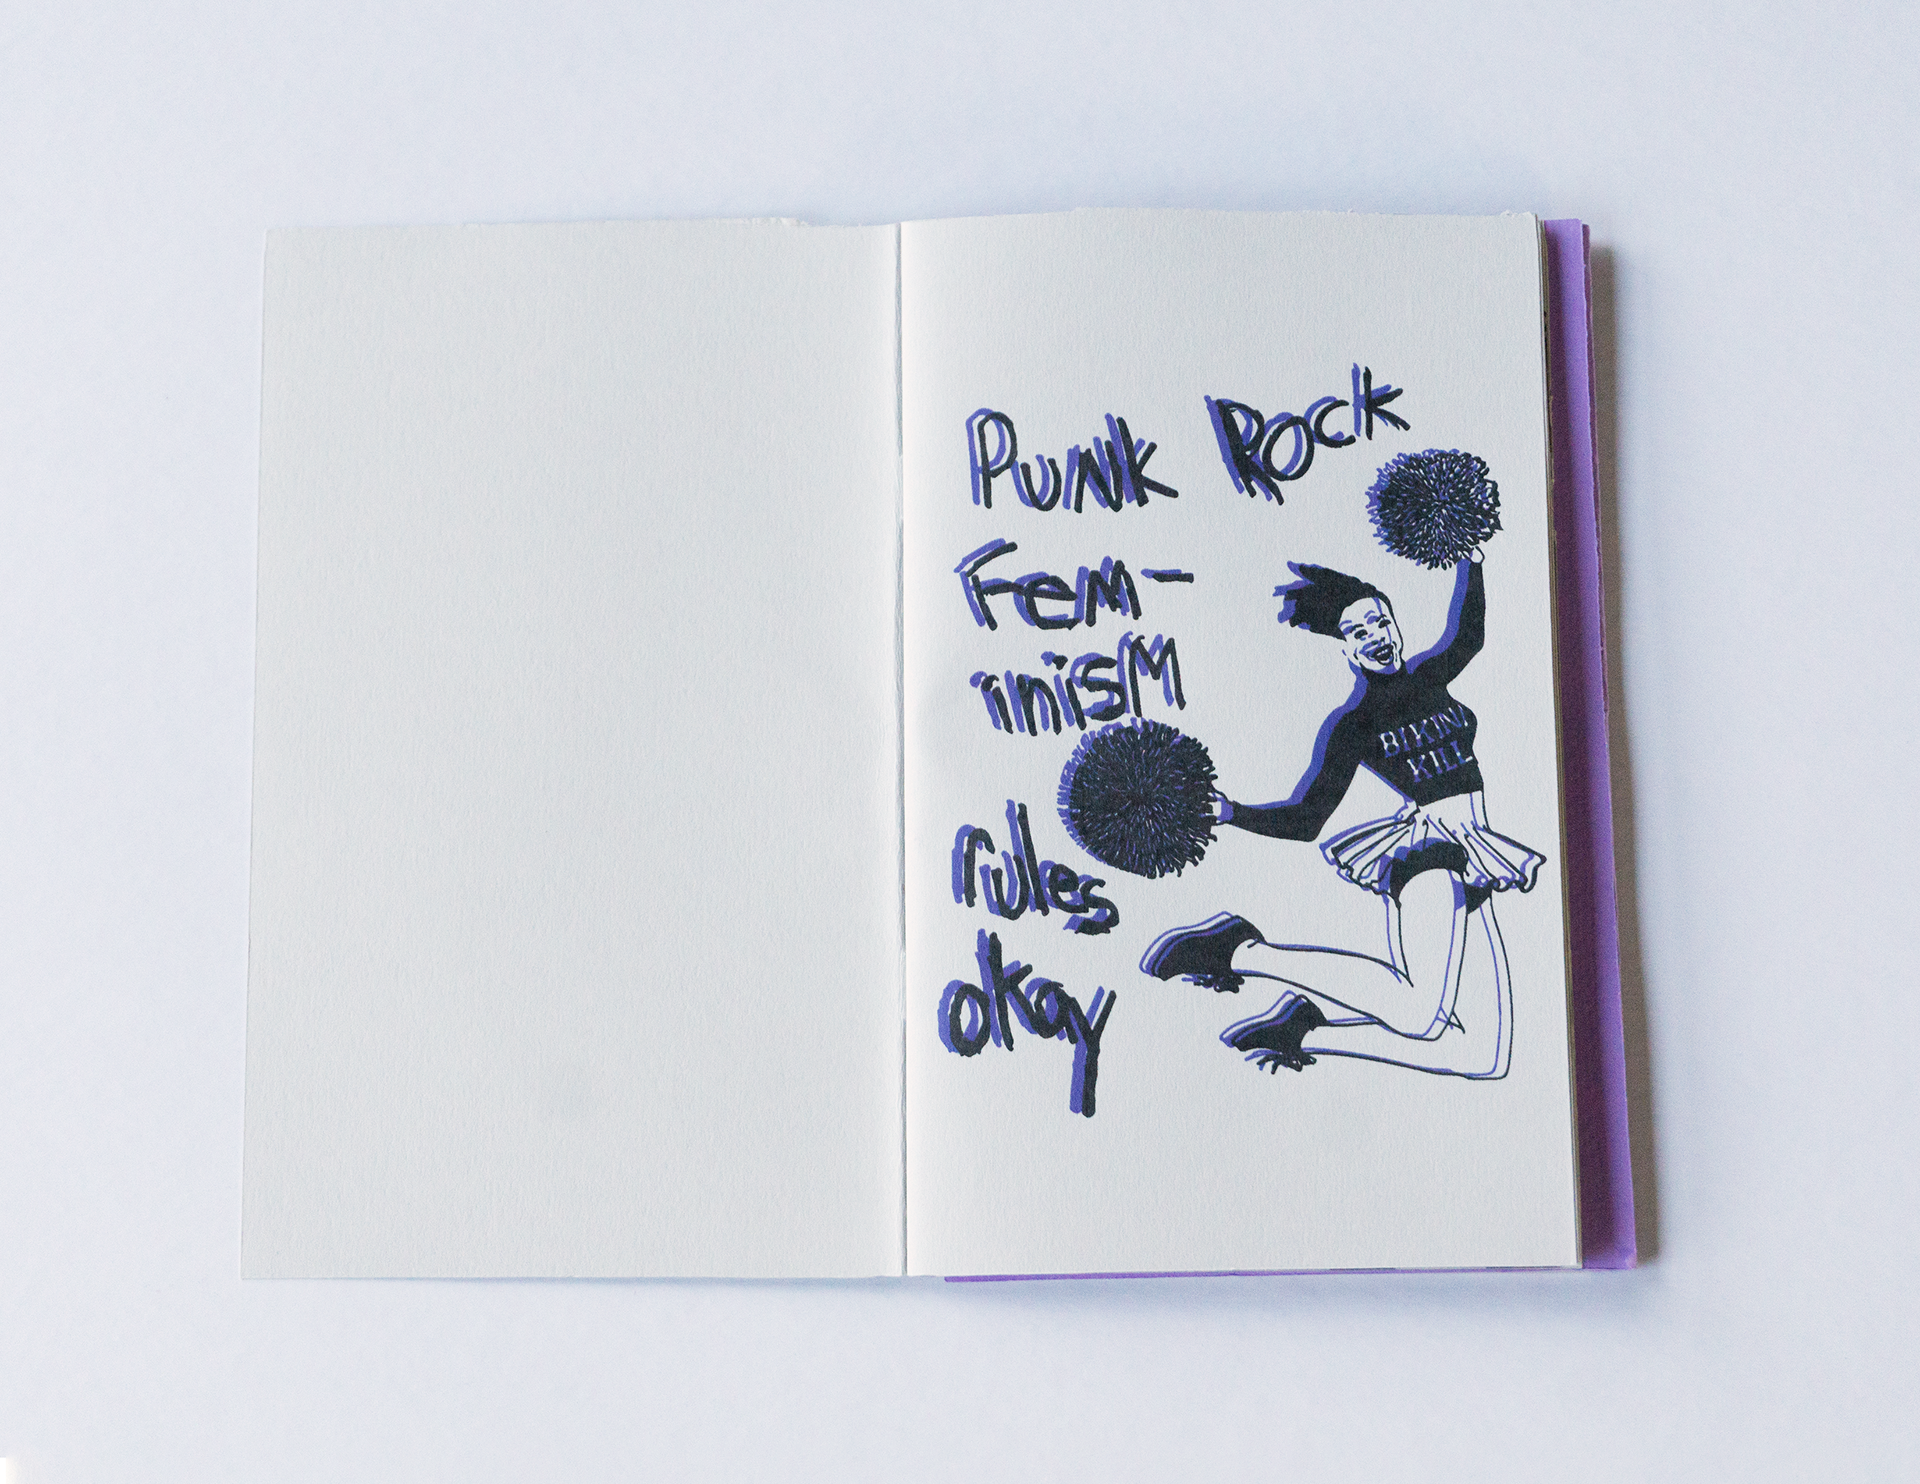 Punk Rock
Fem-
inisM
rules
okay
BIKINI
KILL